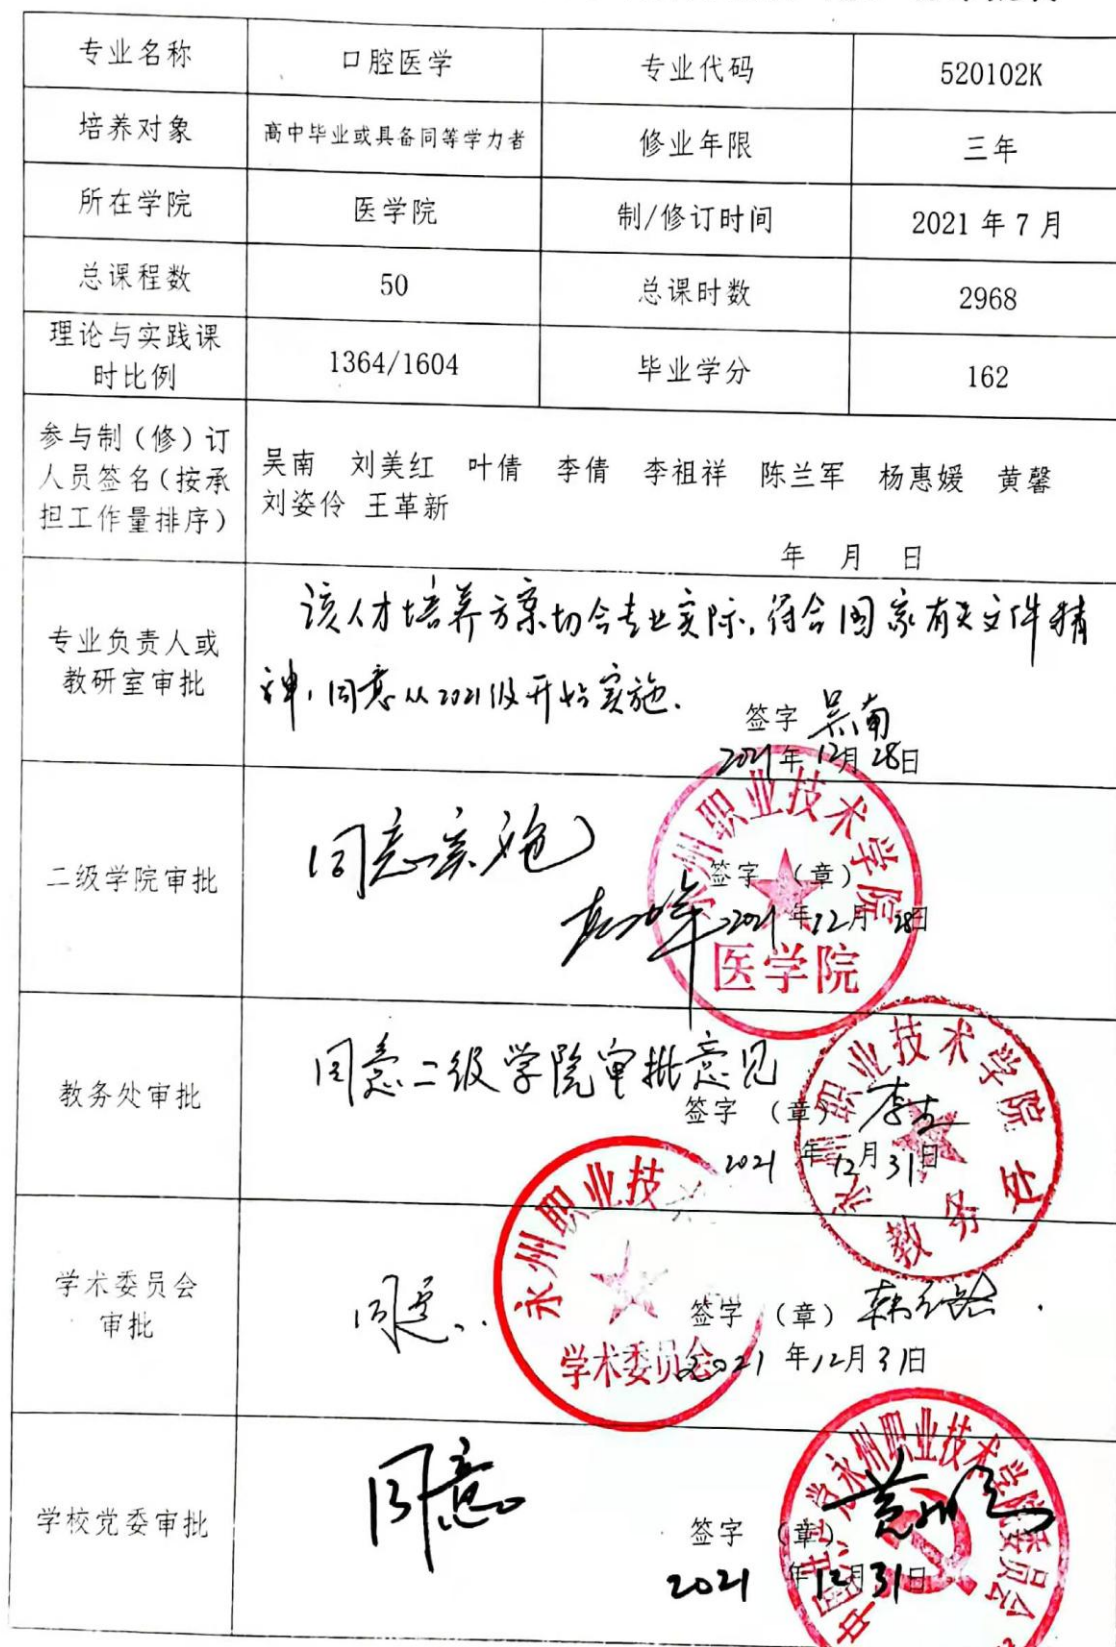 专业名称 口腔医学 专业代码 520102K
培养对象 高中毕业或具备同等学力者 修业年限 三年
所在学院 医学院 制/修订时间 2021年7月
总课程数 50 总课时数 2968
理论与实践课
时比例 1364/1604 毕业学分 162
参与制（修）订
人员签名（按承
担工作量排序）
吴南 刘美红 叶倩 李倩 李祖祥 陈兰军 杨惠媛 黄馨
刘姿伶 王革新
年 月 日
专业负责人或
教研室审批
该人才培养方案切合专业实际，符合国家有关文件精
神，同意从2021级开始实施.
签字 吴南
2021年12月28日
二级学院审批
同意实施
签字 （章）
2021年12月28日
永州职业技术学院
医学院
教务处审批
同意二级学院审批意见
签字 （章）
2021年12月31日
永州职业技术学院
教务处
学术委员会
审批
同意.
签字 （章）
2021年12月31日
永州职业技
学术委员会
学校党委审批
同意
签字 （章）
2021年12月31日
中国共产党永州职业技术学院委员会